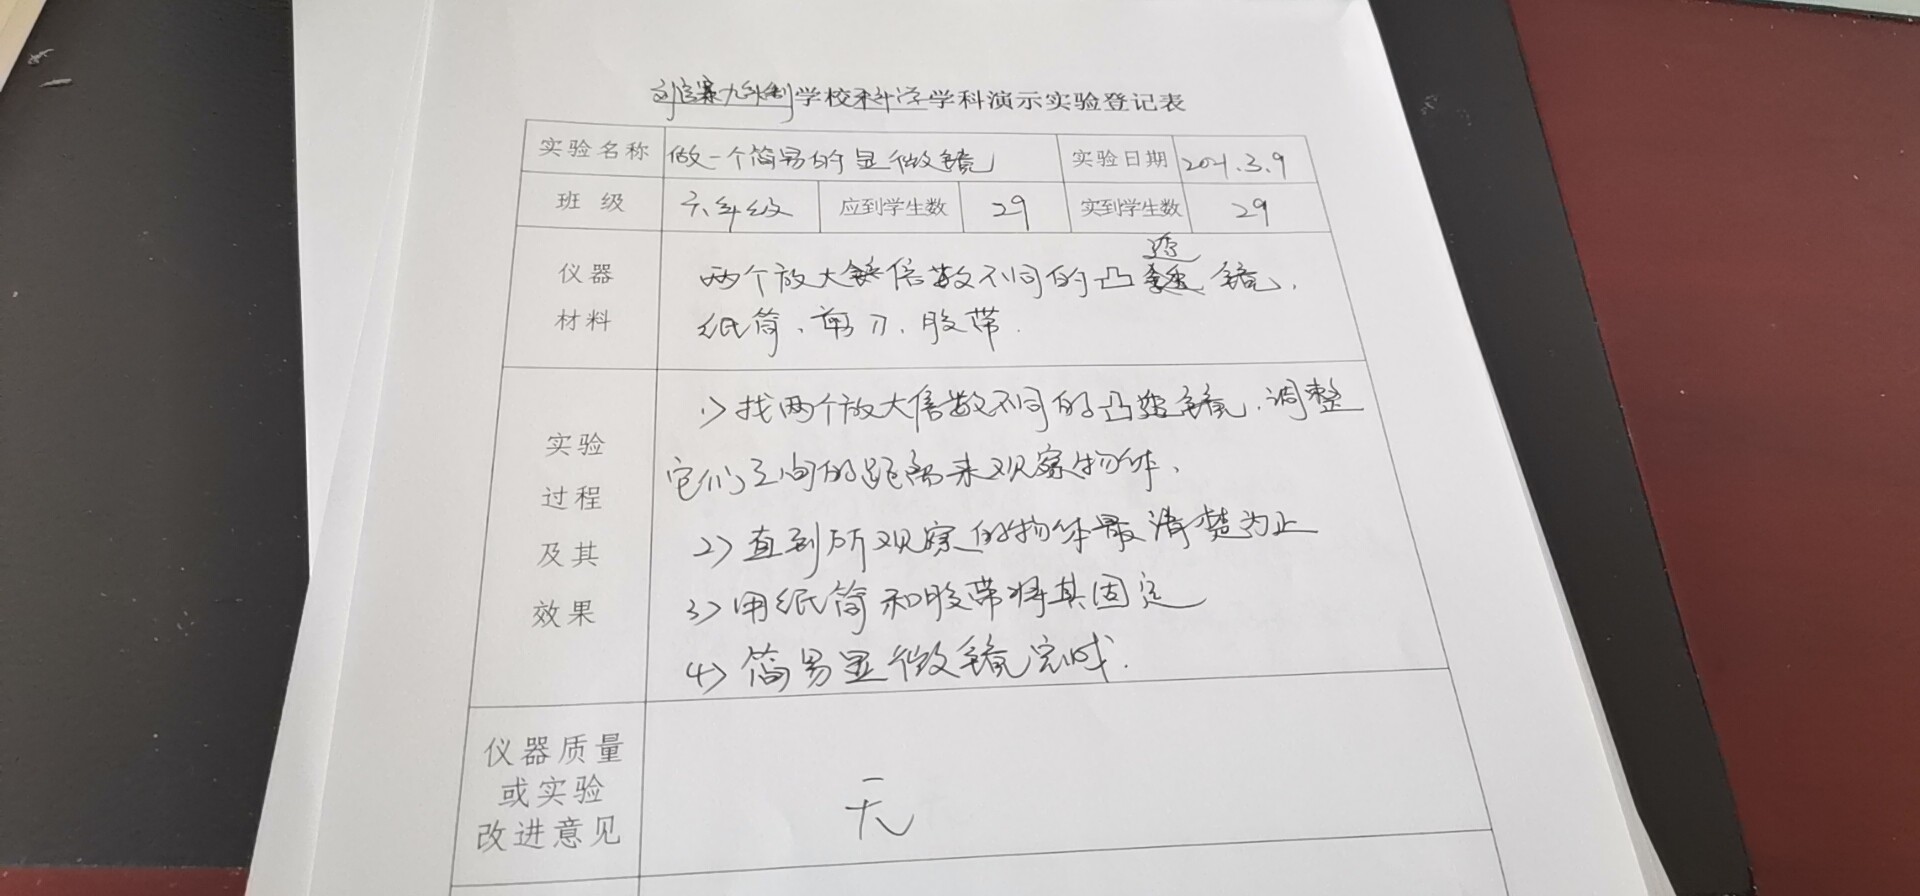 刘官寨九年制学校科学学科演示实验登记表
实验名称 做一个简易的显微镜 实验日期 2021.3.9
班级 六年级 应到学生数 29 实到学生数 29
仪器材料 两个放大倍数不同的凸透镜、
纸筒、剪刀、胶带.
实验过程及其效果
1) 找两个放大倍数不同的凸透镜.调整
它们之间的距离来观察物体、
2) 直到所观察的物体最清楚为止
3) 用纸筒和胶带将其固定
4) 简易显微镜完成.
仪器质量或实验改进意见 无